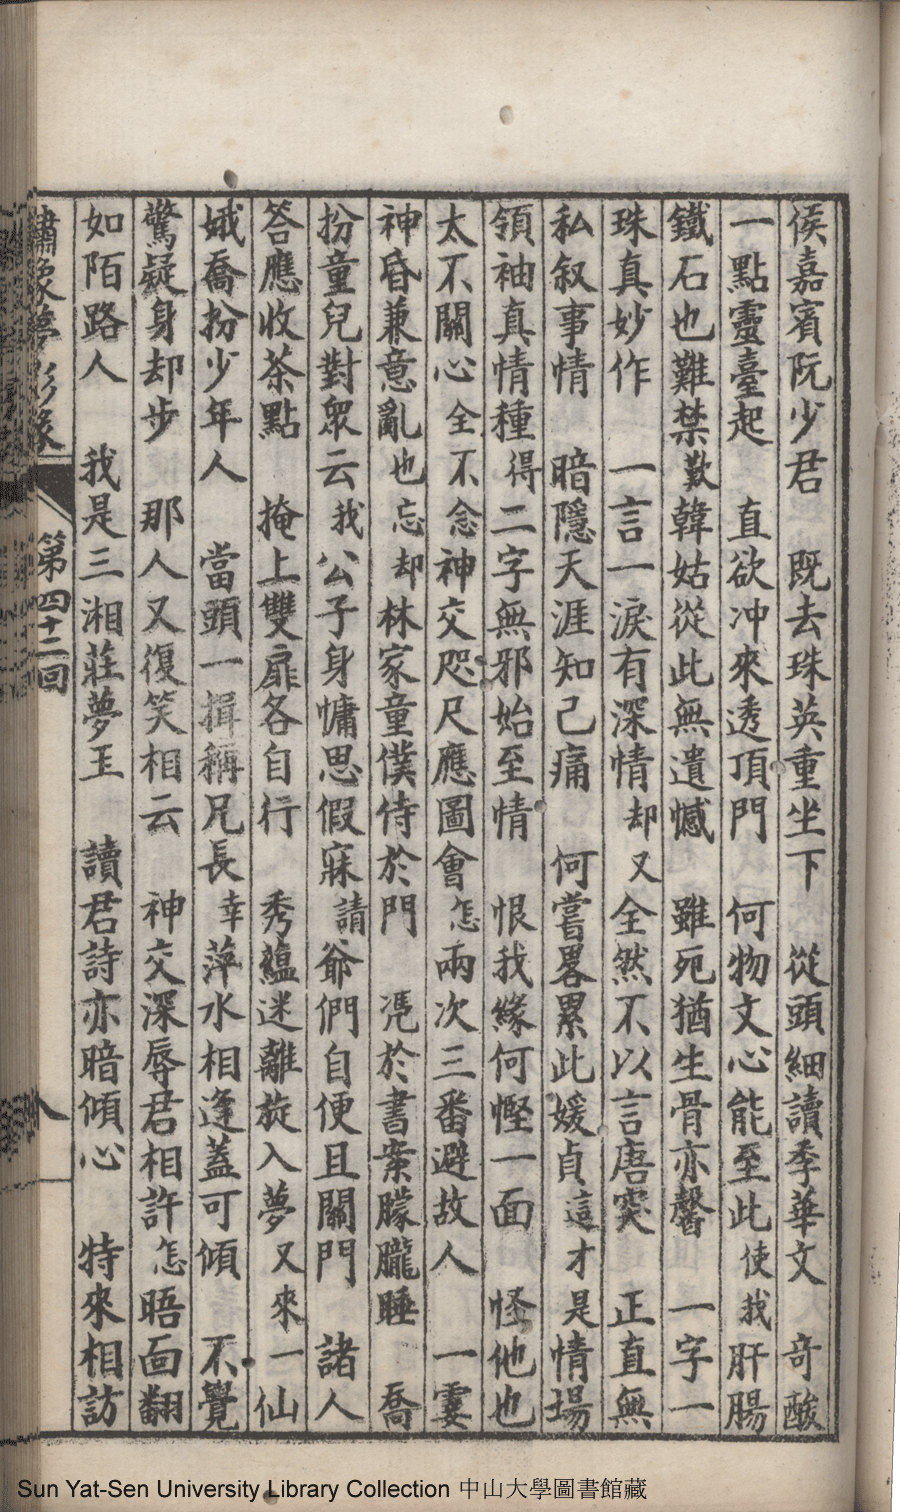 侯嘉賓阮少君　既去珠英重坐下　從頭細讀季華文　奇酸
一點靈臺起　直欲冲來透頂門　何物文心能至此使我肝腸
鐵石也難禁歎韓姑從此無遺憾　雖死猶生骨亦馨　一字一
珠真妙作　一言一淚有深情却又全然不以言唐突　正直無
私叙事情　暗隱天涯知己痛　何嘗畧累此媛貞這才是情場
領袖真情種得二字無邪始至情　恨我緣何慳一面　怪他也
太不關心全不念神交咫尺應圖會怎兩次三番避故人　一霎
神昏兼意亂也忘却林家童僕侍於門　凭於書案朦朧睡　喬
扮童兒對眾云我公子身慵思假寐請爺們自便且關門　諸人
答應收茶點　掩上雙扉各自行　秀蘊迷離旋入夢又來一仙
娥喬扮少年人　當頭一揖稱兄長幸萍水相逢蓋可傾　不覺
驚疑身却步　那人又復笑相云　神交深辱君相許怎晤面翻
如陌路人　我是三湘莊夢玉　讀君詩亦暗傾心　特來相訪
繡像夢影緣　第四十二回　八
Sun Yat-Sen University Library Collection 中山大學圖書館藏